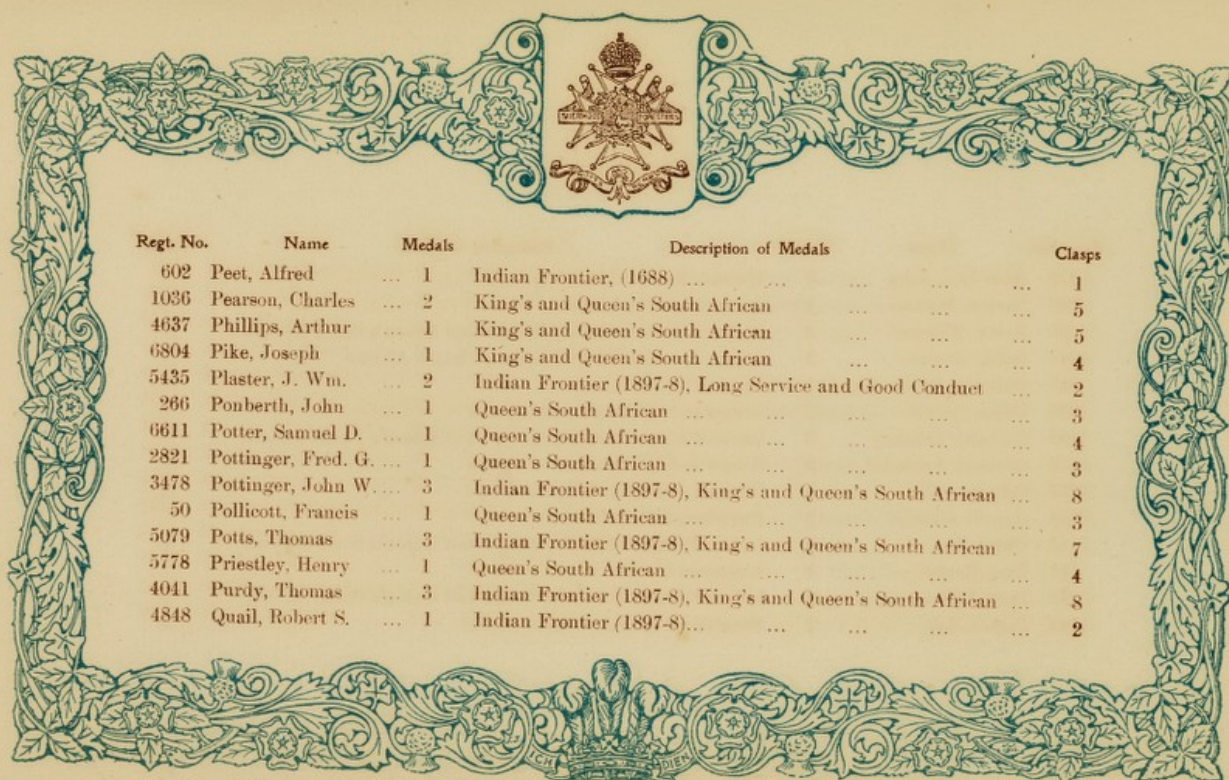 SHERWOOD FORESTERS
Regt. No. Name Medals Description of Medals Clasps
602 Peet, Alfred ... 1 Indian Frontier, (1688) ... ... ... ... ... 1
1036 Pearson, Charles ... 2 King's and Queen's South African ... ... ... 5
4637 Phillips, Arthur ... 1 King's and Queen's South African ... ... ... 5
6804 Pike, Joseph ... 1 King's and Queen's South African ... ... ... 4
5435 Plaster, J. Wm. ... 2 Indian Frontier (1897-8), Long Service and Good Conduct ... 2
266 Ponberth, John ... 1 Queen's South African ... ... ... ... ... 3
6611 Potter, Samuel D. ... 1 Queen's South African ... ... ... ... ... 4
2821 Pottinger, Fred. G. ... 1 Queen's South African ... ... ... ... ... 3
3478 Pottinger, John W. ... 3 Indian Frontier (1897-8), King's and Queen's South African ... 8
50 Pollicott, Francis ... 1 Queen's South African ... ... ... ... ... 3
5079 Potts, Thomas ... 3 Indian Frontier (1897-8), King's and Queen's South African . 7
5778 Priestley, Henry ... 1 Queen's South African ... ... ... ... ... 4
4041 Purdy, Thomas ... 3 Indian Frontier (1897-8), King's and Queen's South African ... 8
4848 Quail, Robert S. ... 1 Indian Frontier (1897-8)... ... ... ... ... 2
ICH DIEN